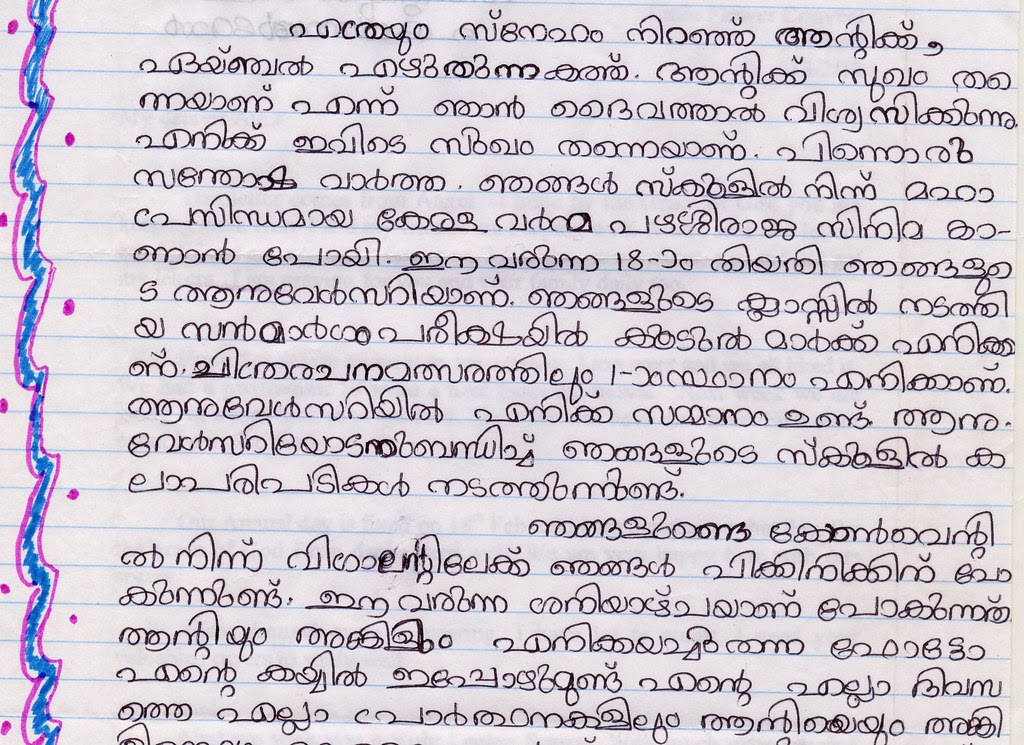 എത്രയും സ്നേഹം നിറഞ്ഞ ആന്റിക്ക്,
ഏയ്ഞ്ചൽ എഴുതുന്ന കത്ത്. ആന്റിക്ക് സുഖം തന്നെ
ന്നയാണ് എന്ന് ഞാൻ ദൈവത്താൽ വിശ്വസിക്കുന്നു.
എനിക്ക് ഇവിടെ സുഖം തന്നെയാണ്. പിന്നൊരു
സന്തോഷ വാർത്ത. ഞങ്ങൾ സ്കൂളിൽ നിന്ന് മഹാ
പേസിന്ധമായ കേരള വർമ്മ പഴശ്ശിരാജ സിനിമ കാ-
ണാൻ പോയി. ഈ വരുന്ന 18-ാം തിയതി ഞങ്ങളു
ടെ ആനുവേൾസറിയാണ്. ഞങ്ങളുടെ ക്ലാസ്സിൽ നടത്തി
യ സൻമാർഗ പരീക്ഷയിൽ കൂടുതൽ മാർക്ക് എനിക്കാ
ണ്. ചിത്രരചനമത്സരത്തിലും 1-ാംസ്ഥാനം എനിക്കാണ്.
ആനുവേൾസറിയിൽ എനിക്ക് സമ്മാനം ഉണ്ട്. ആനു-
വേൾസറിയോടനുബന്ധിച്ച് ഞങ്ങളുടെ സ്കൂളിൽ ക
ലാപരിപടികൾ നടത്തുന്നുണ്ട്.
കോൺവെന്റി
ൽ നിന്ന് വിഗാലന്റിലേക്ക് ഞങ്ങൾ പിക്കിനിക്കിന് പോ
കുന്നുണ്ട്. ഈ വരുന്ന ശനിയാഴ്ചയാണ് പോകുന്നത്.
ആന്റിയും അങ്കിളും എനിക്കയച്ചുതന്ന ഫോട്ടോ
എന്റെ കയ്യിൽ ഇപ്പോഴുമുണ്ട് എന്റെ എല്ലാ ദിവസ
ത്തെ എല്ലാ പ്രാർത്ഥനകളിലും ആന്റിയെയും അങ്കി